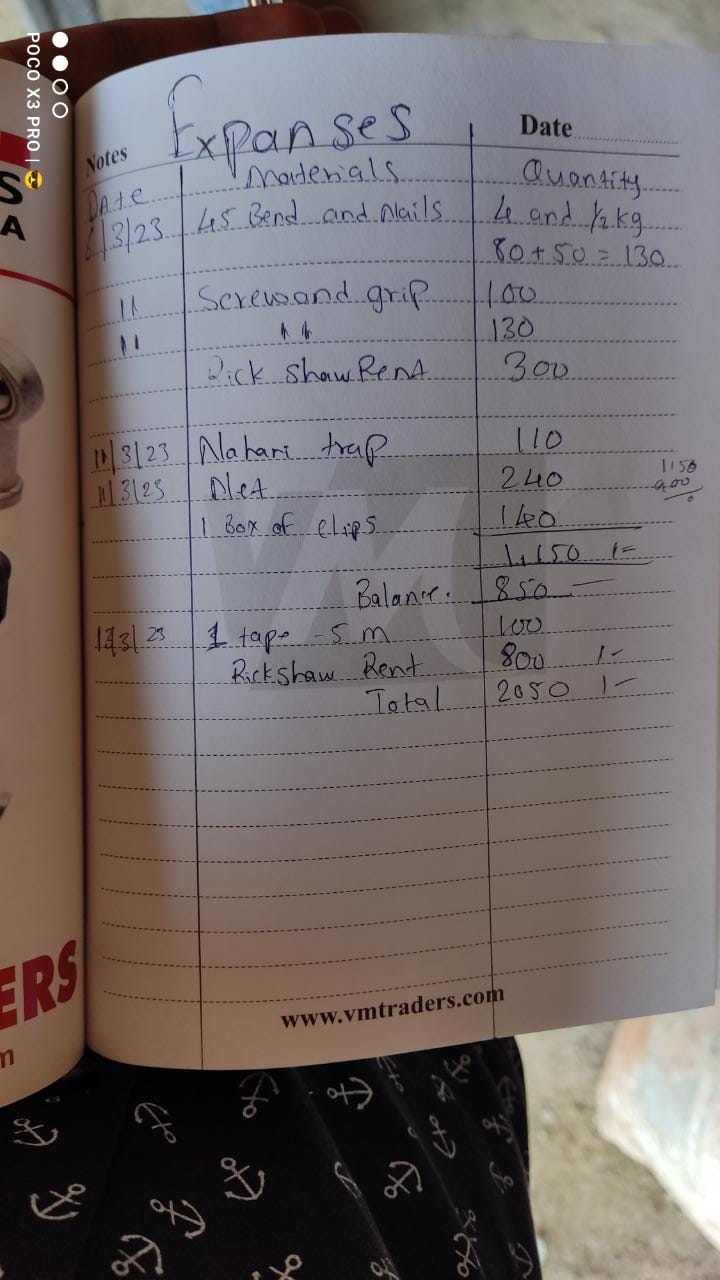 POCO X3 PRO |
S
A
ERS
m
Expanses
Notes
Date
Date Materials Quantity
6/3/23 45 Bend and Nails 4 and 1/2 kg
80 + 50 = 130
" Screws and grip 100
" " 130
Rick Shaw Rent 300
11/3/23 Nahani trap 110
11/3/23 Net 240
1 Box of clips 140
1,150 /=
1150
Balance. 850
/3/23 1 tape - 5 m 100
Rickshaw Rent 800 /-
Total 2050 /-
VMT
www.vmtraders.com